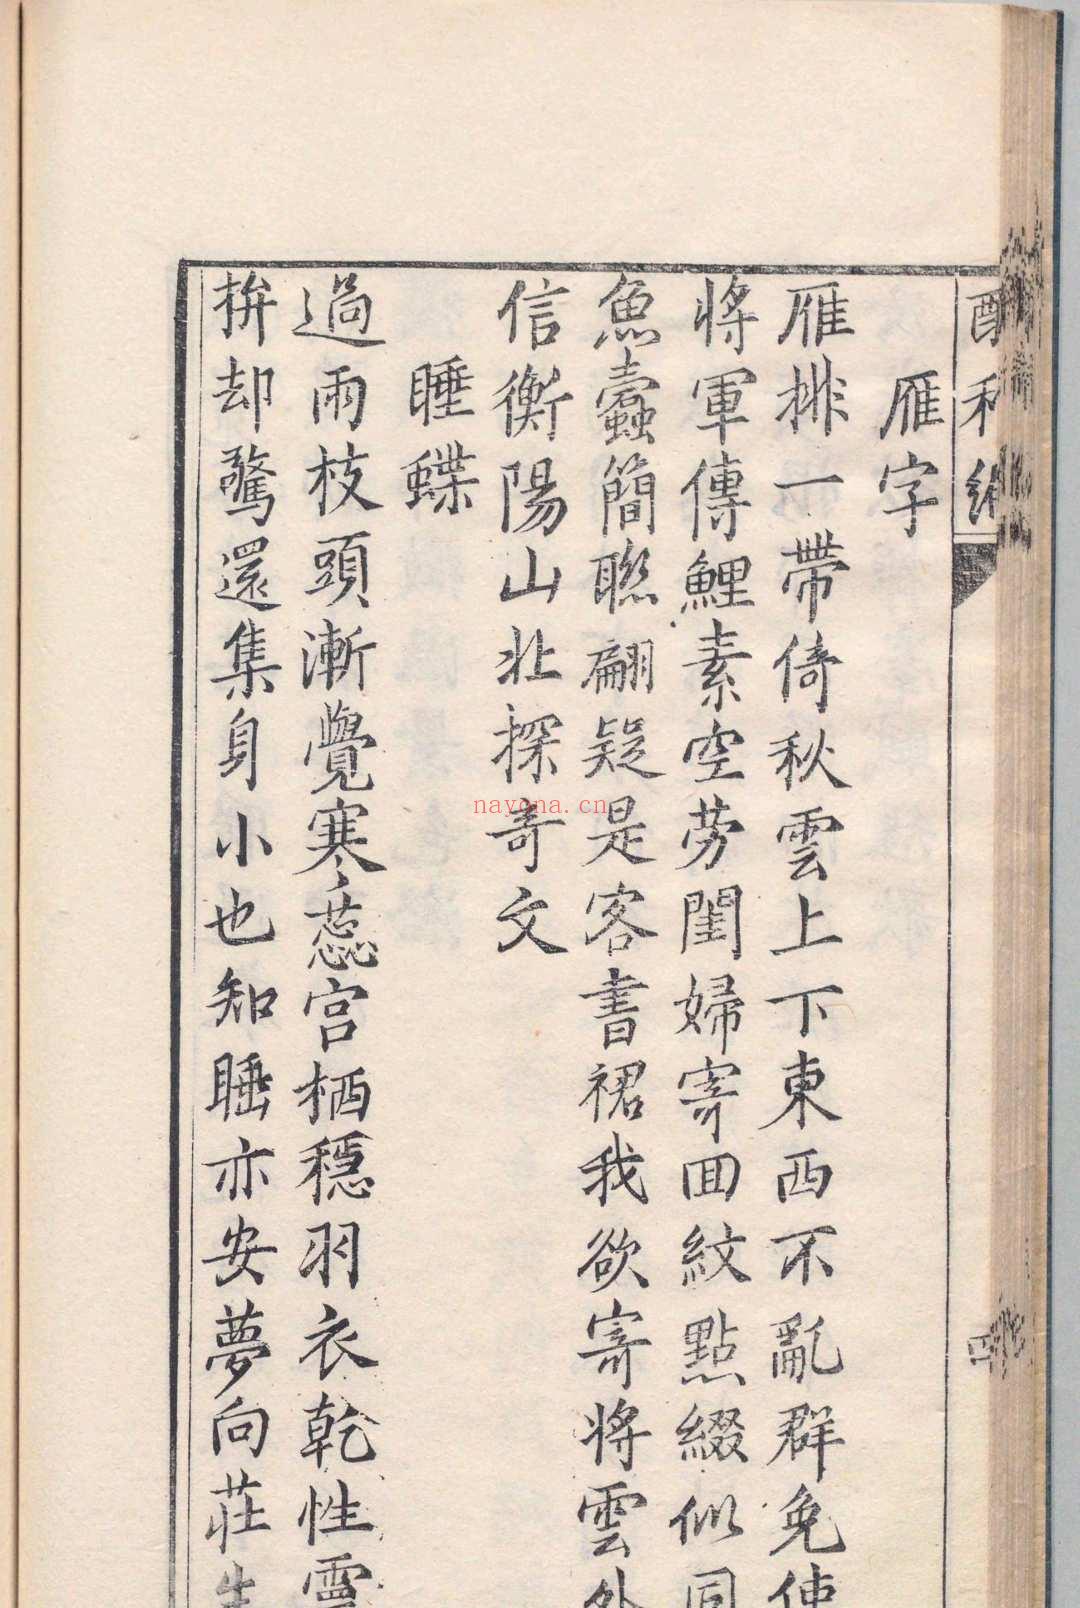 酬和
雁字
雁排一帶倚秋雲上下東西不亂群免使
將軍傳鯉素空勞閨婦寄回紋點綴似同
魚蠹簡聯翩疑是客書裙我欲寄將雲外
信衡陽山北探奇文
睡蝶
過雨枝頭漸覺寒蕊宮栖穩羽衣乾性靈
拚却驚還集身小也知睡亦安夢向莊生
nayona.cn